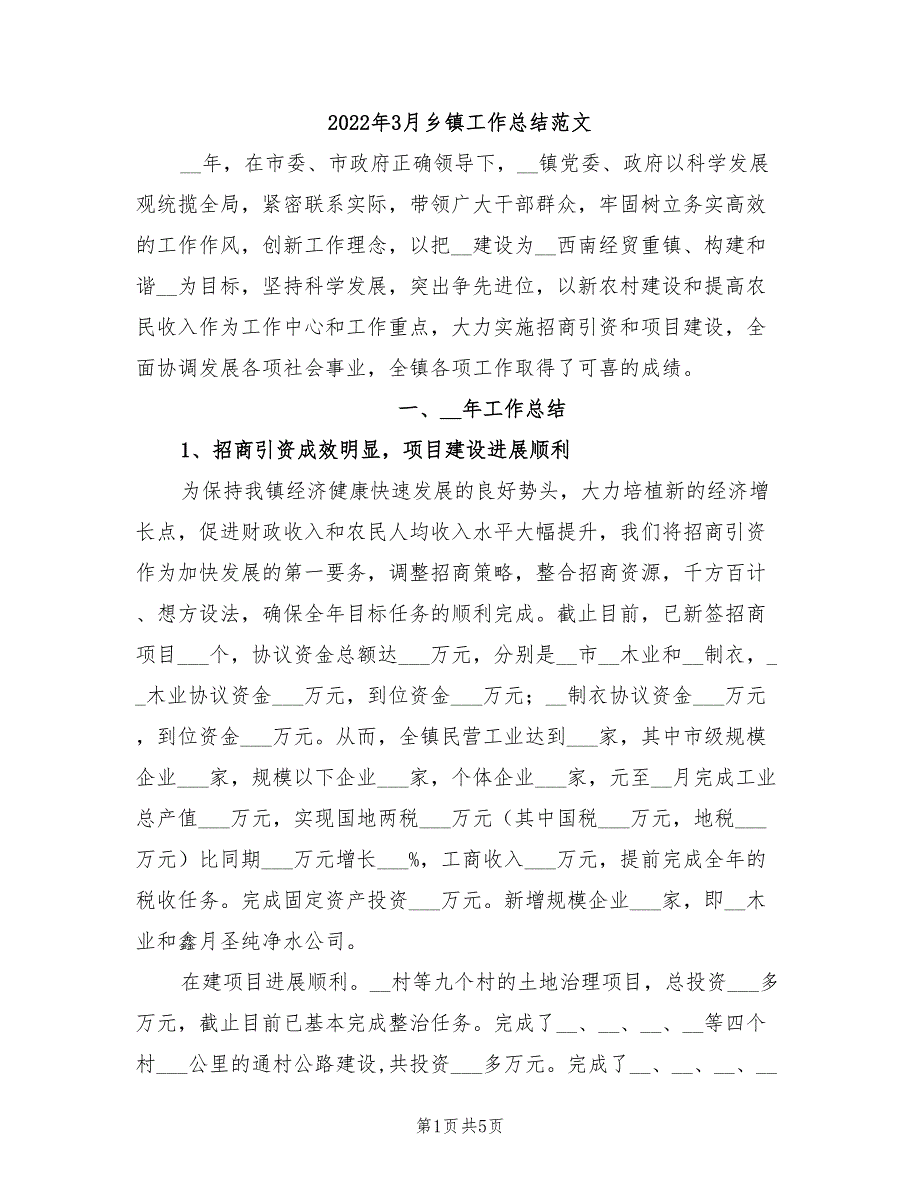 2022年3月乡镇工作总结范文
__年，在市委、市政府正确领导下，__镇党委、政府以科学发展
观统揽全局，紧密联系实际，带领广大干部群众，牢固树立务实高效
的工作作风，创新工作理念，以把__建设为__西南经贸重镇、构建和
谐__为目标，坚持科学发展，突出争先进位，以新农村建设和提高农
民收入作为工作中心和工作重点，大力实施招商引资和项目建设，全
面协调发展各项社会事业，全镇各项工作取得了可喜的成绩。
一、__年工作总结
1、招商引资成效明显，项目建设进展顺利
为保持我镇经济健康快速发展的良好势头，大力培植新的经济增
长点，促进财政收入和农民人均收入水平大幅提升，我们将招商引资
作为加快发展的第一要务，调整招商策略，整合招商资源，千方百计
、想方设法，确保全年目标任务的顺利完成。截止目前，已新签招商
项目___个，协议资金总额达___万元，分别是__市__木业和__制衣，_
_木业协议资金___万元，到位资金___万元；__制衣协议资金___万元
，到位资金___万元。从而，全镇民营工业达到___家，其中市级规模
企业___家，规模以下企业___家，个体企业___家，元至__月完成工业
总产值___万元，实现国地两税___万元（其中国税___万元，地税___
万元）比同期___万元增长___%，工商收入___万元，提前完成全年的
税收任务。完成固定资产投资___万元。新增规模企业___家，即__木
业和鑫月圣纯净水公司。
在建项目进展顺利。__村等九个村的土地治理项目，总投资___多
万元，截止目前已基本完成整治任务。完成了__、__、__、__等四个
村___公里的通村公路建设,共投资___多万元。完成了__、__、__、__
第1页 共5页